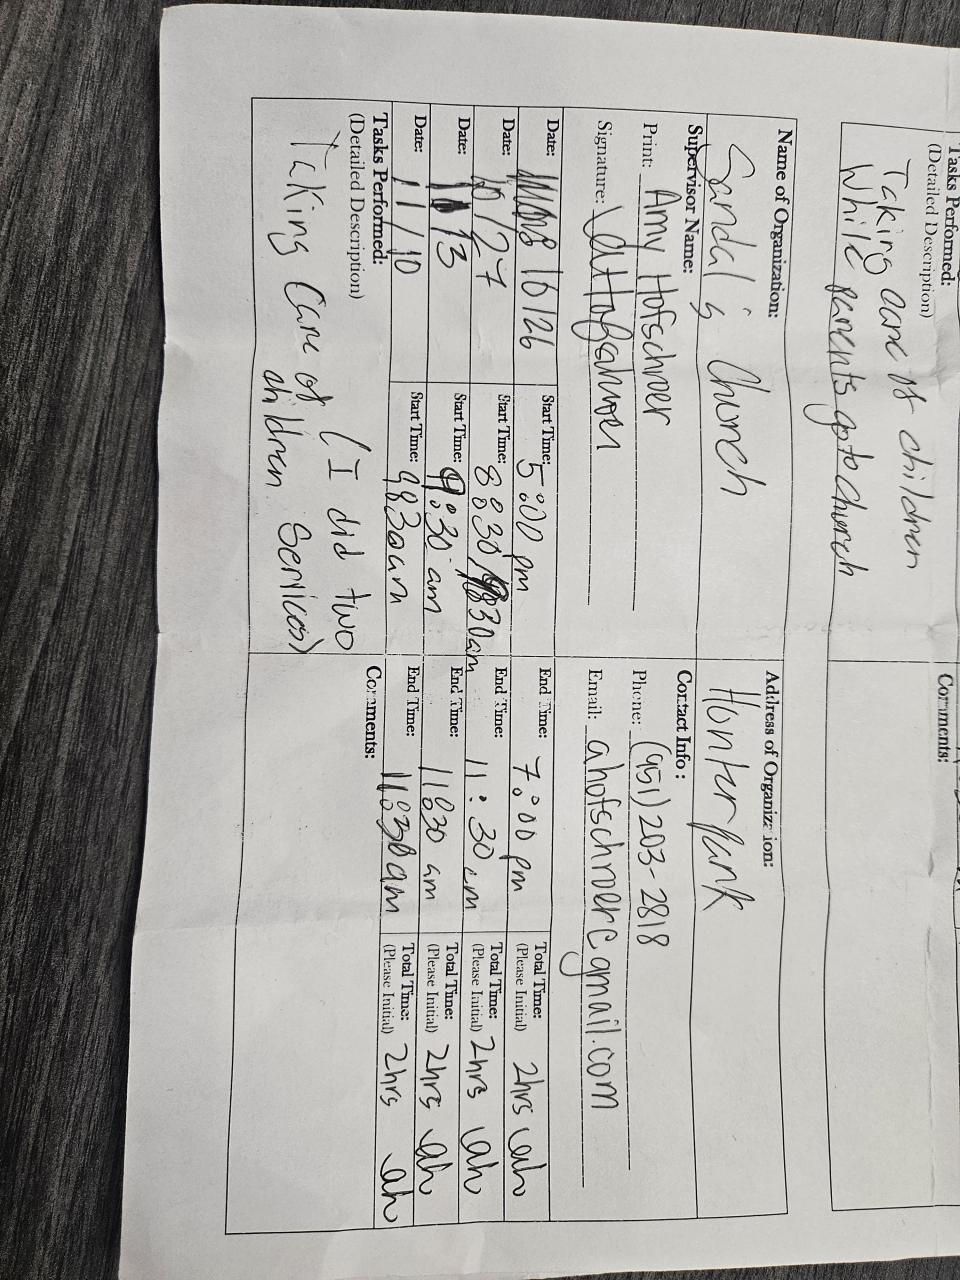 Tasks Performed:
(Detailed Description)
Taking care of children
While parents go to church
Comments:
Name of Organization:
Sandal's Church
Address of Organization:
Hunter Park
Supervisor Name:
Print: Amy Hofschroer
Signature:
Contact Info :
Phone: (951) 203-2818
Email: ahofschroer@gmail.com
Date: 10/26 Start Time: 5:00 pm End Time: 7:00 pm Total Time: (Please Initial) 2hrs ah
Date: 10/27 Start Time: 8:30 9:30am End Time: 11:30 am Total Time: (Please Initial) 2hrs ah
Date: 11/3 Start Time: 9:30 am End Time: 11:30 am Total Time: (Please Initial) 2hrs ah
Date: 11/10 Start Time: 9:30am End Time: 11:30am Total Time: (Please Initial) 2hrs ah
Tasks Performed:
(Detailed Description)
Taking Care of children
(I did two Services)
Comments: